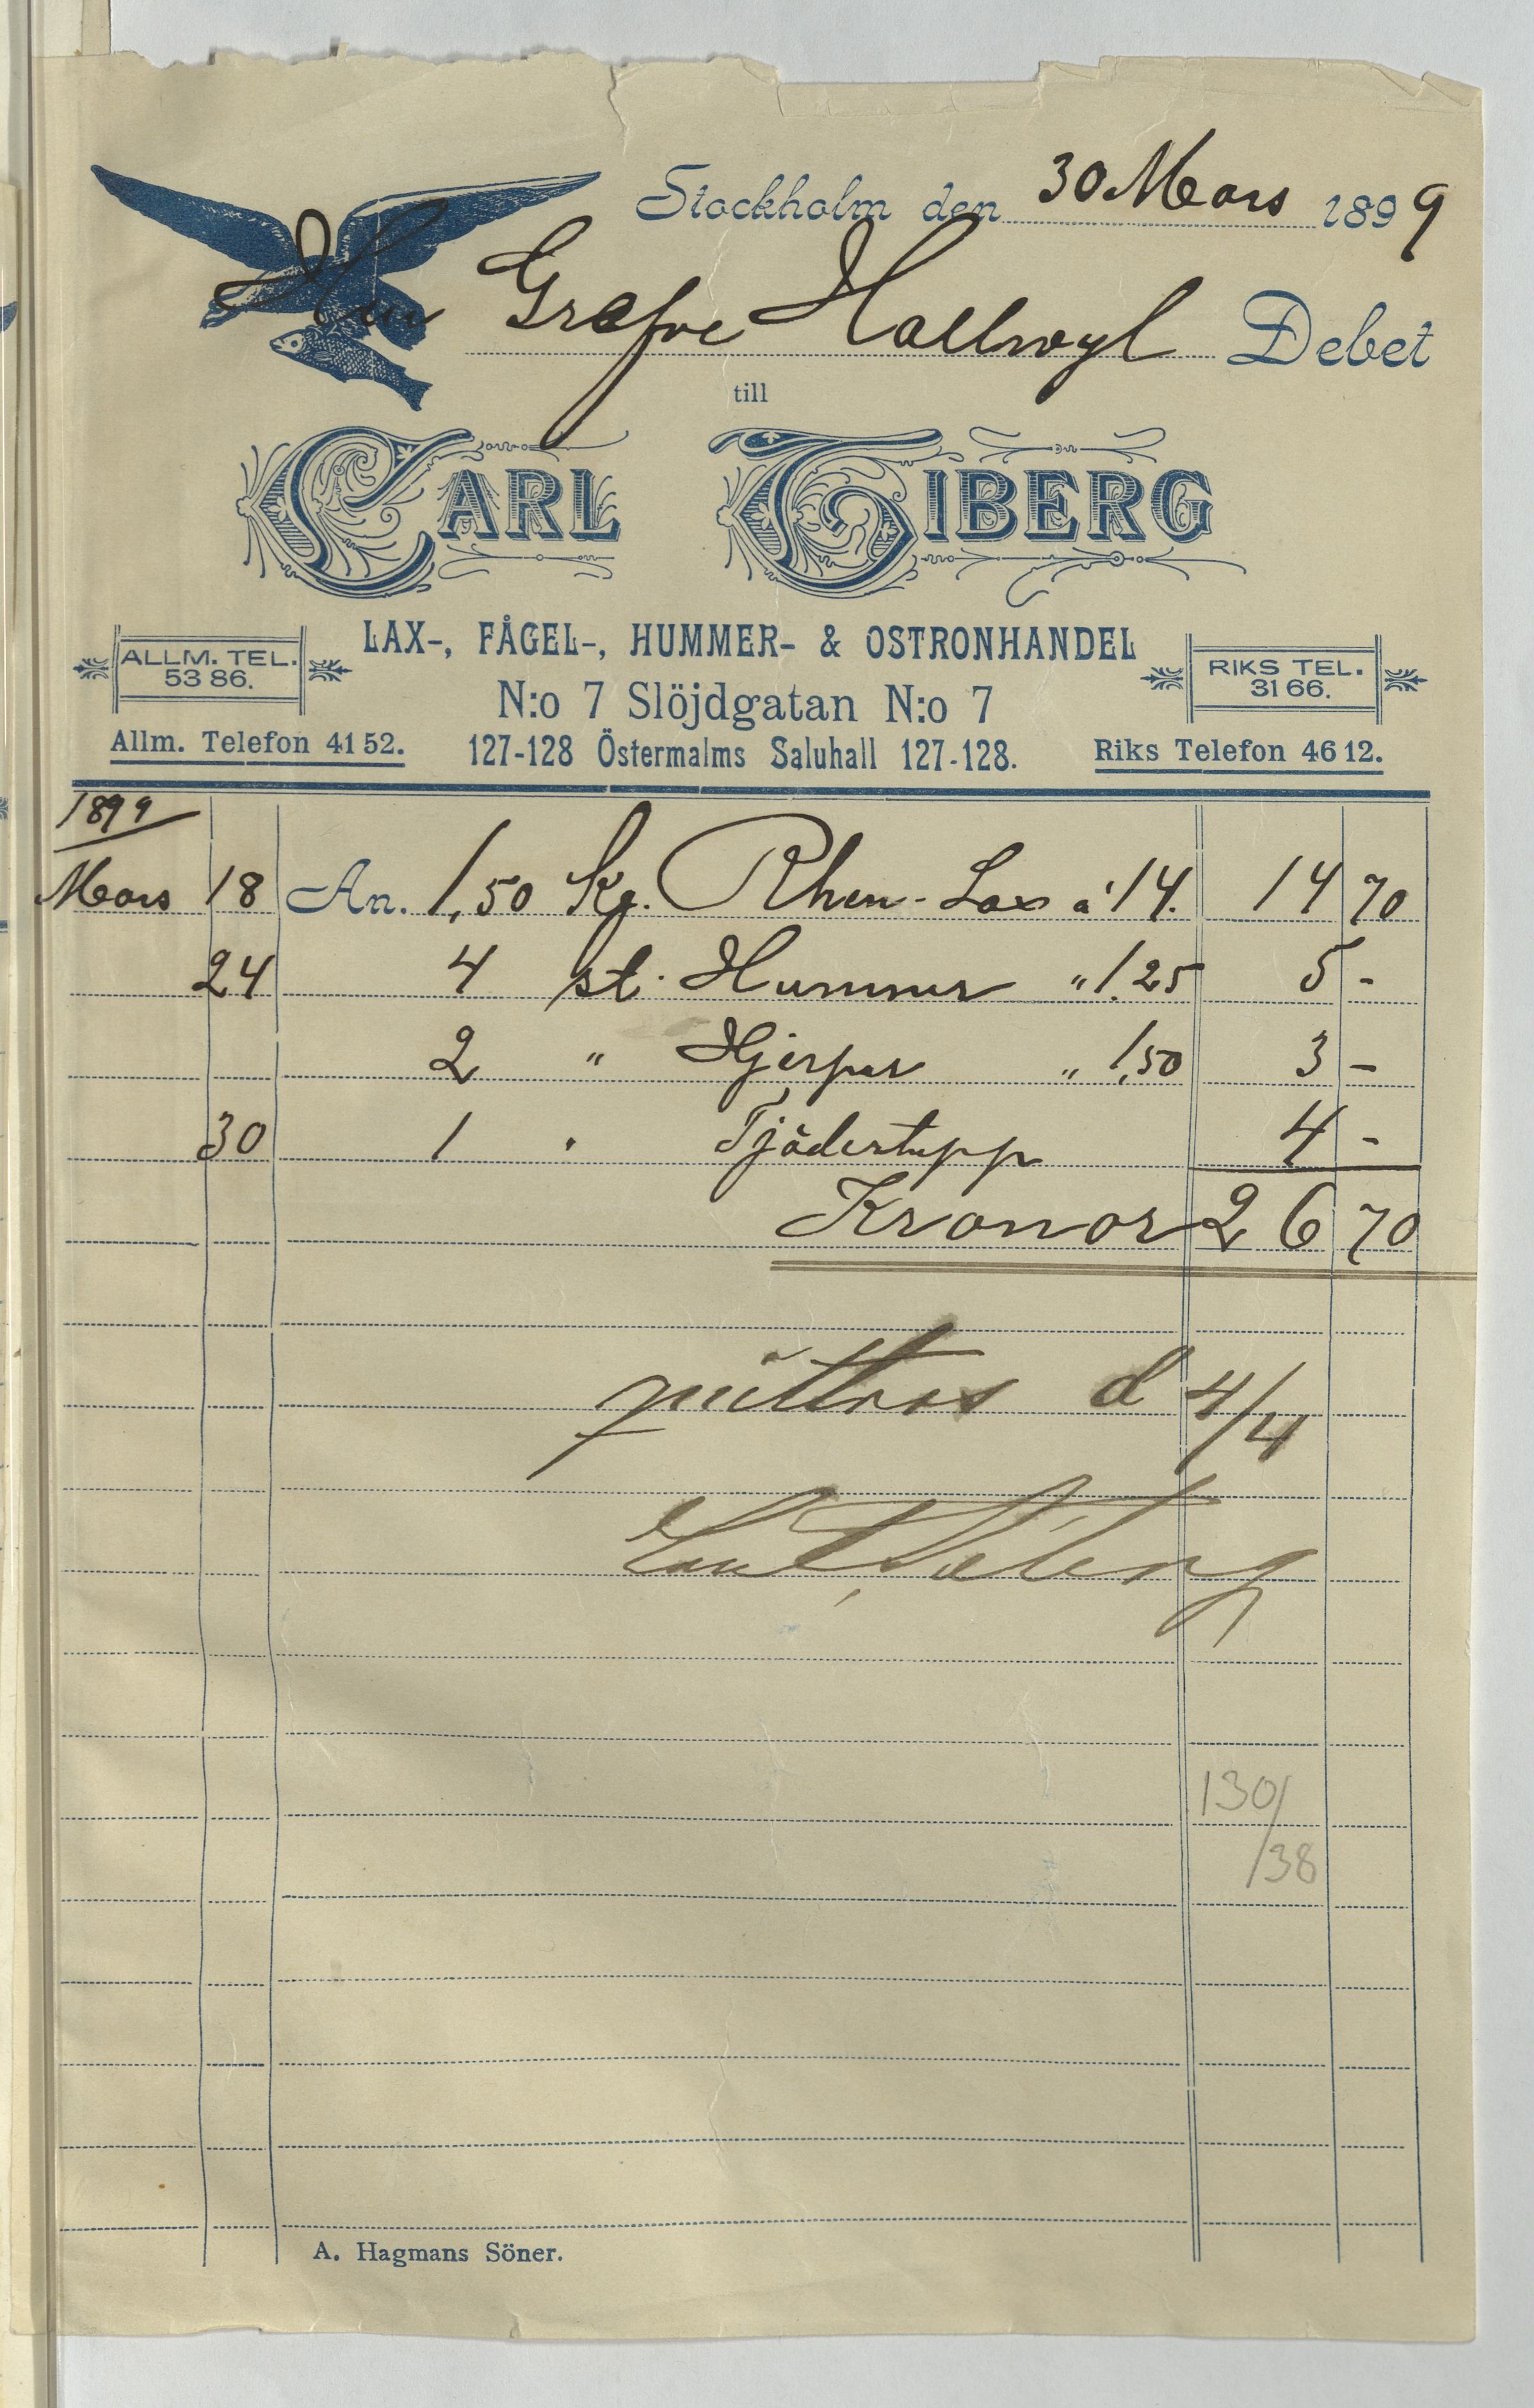 Stockholm den 30 Mars 1899
Herr Grefve Hallwyl Debet
till
CARL TIBERG
LAX-, FÅGEL-, HUMMER- & OSTRONHANDEL
ALLM. TEL.
53 86.
RIKS TEL.
31 66.
N:o 7 Slöjdgatan N:o 7
Allm. Telefon 41 52.
127-128 Östermalms Saluhall 127-128.
Riks Telefon 46 12.
1899
Mars 18 An. 1,50 Kg. Rhen-Lax à 14. 14 70
24 4 st. Hummer " 1,25 5 -
2 " Hjerpar " 1,50 3 -
30 1 " Tjädertupp 4 -
Kronor 26 70
qvitteras d 4/4
Tiberg
130/
/38
A. Hagmans Söner.